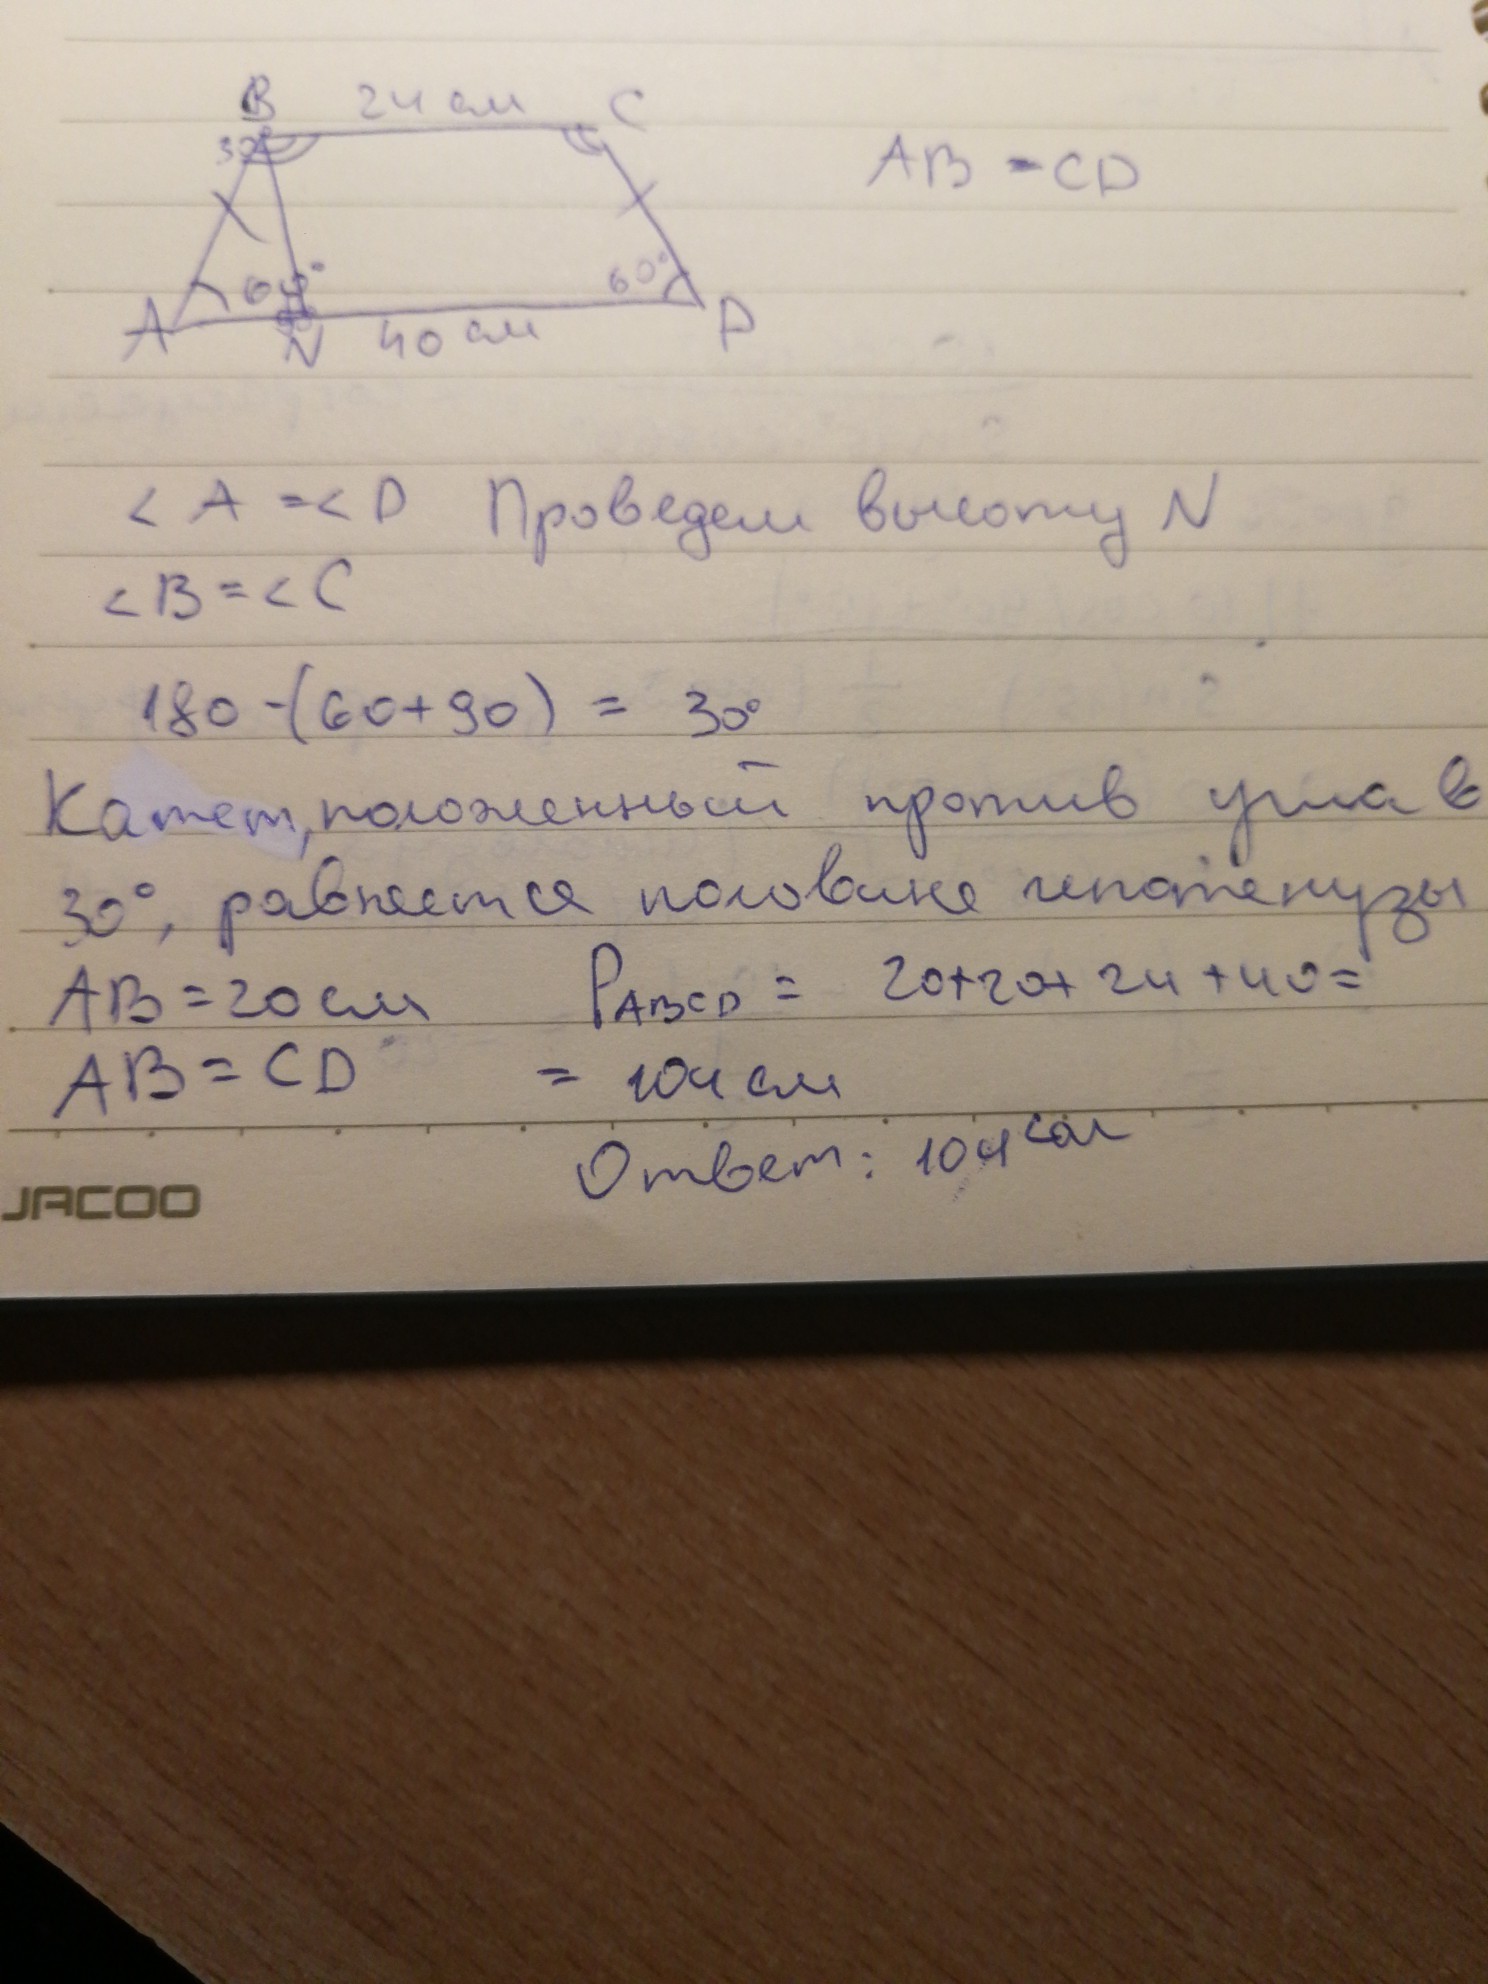 B 24 см C
30°
AB = CD
60° 60°
A N 40 см D
< A = < D Проведем высоту N
< B = < C
180 - (60 + 90) = 30°
Катет, положенный против угла в
30°, равняется половине гипотенузы
AB = 20 см PABCD = 20+20+24+40=
AB = CD = 104 см
Ответ: 104 см
JACOO